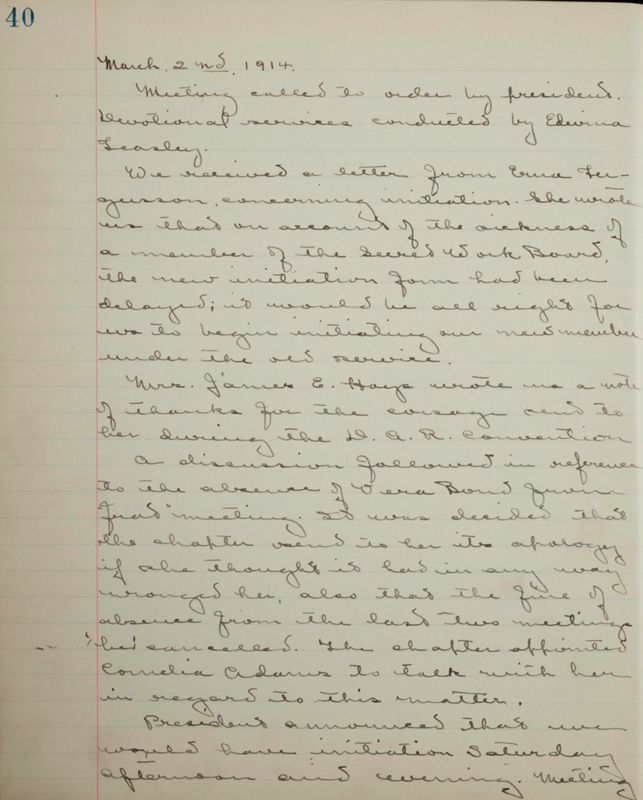 40
March. 2nd. 1914.
Meeting called to order by president.
Devotional services conducted by Edwina
Leasley.
We received a letter from Erna Fer-
gusson, concerning initiation. She wrote
us that on account of the sickness of
a member of the Secret Work Board,
the new initiation form had been
delayed; it would be all right for
us to begin initiating our new member
under the old service.
Mrs. James E. Hays wrote us a note
of thanks for the corsage sent to
her during the D. A. R. Convention
A discussion followed in reference
to the absence of Vera Bond from
"frat" meeting. It was decided that
the chapter send to her its apology
if she thought it had in any way
wronged her, also that the fine of
absence from the last two meetings
be cancelled. The chapter appointed
Cornelia Adams to talk with her
in regard to this matter.
President announced that we
would have initiation Saturday
afternoon and evening. Meeting